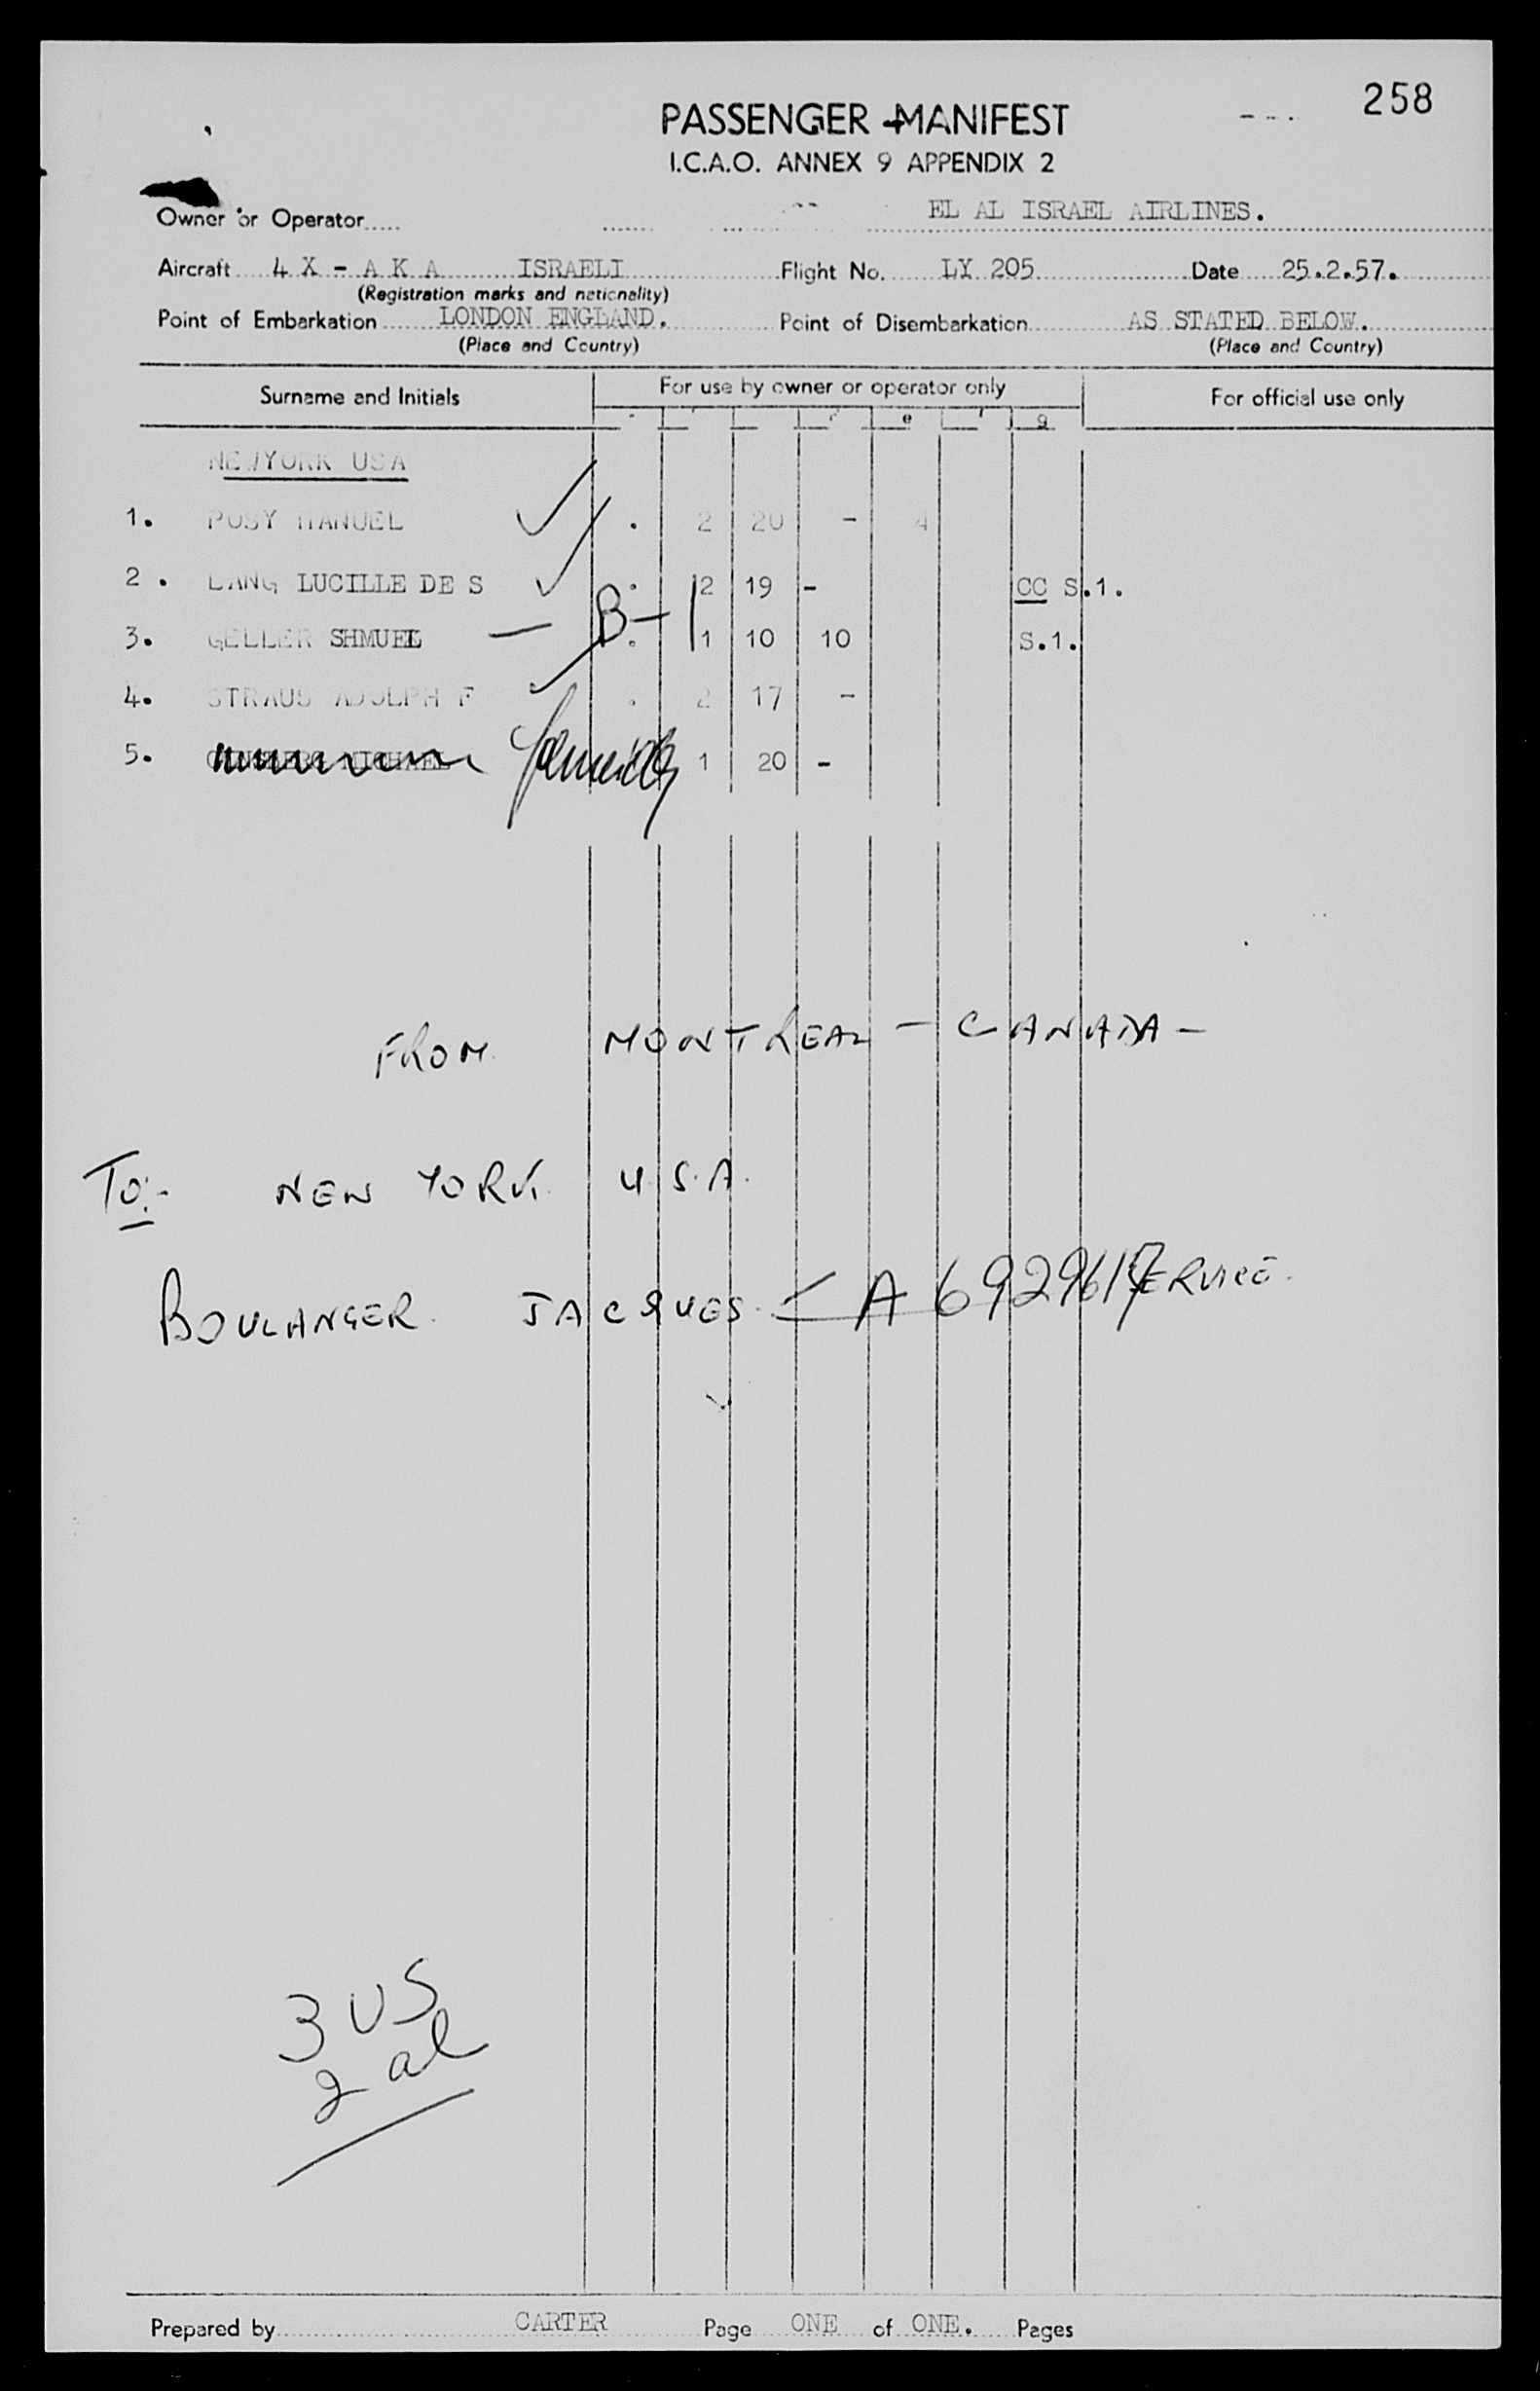 258
PASSENGER MANIFEST
I.C.A.O. ANNEX 9 APPENDIX 2
Owner or Operator EL AL ISRAEL AIRLINES.
Aircraft 4 X - A K A ISRAELI Flight No. LY 205 Date 25.2.57.
(Registration marks and nationality)
Point of Embarkation LONDON ENGLAND. Point of Disembarkation AS STATED BELOW.
(Place and Country) (Place and Country)
Surname and Initials For use by owner or operator only For official use only
e g
NEWYORK USA
1. POSY MANUEL . 2 20 - 4
2 . LANG LUCILLE DE S . 2 19 - CC S.1.
3. GELLER SHMUEL — B-1 . 1 10 10 S.1.
4. STRAUS ADOLPH F . 2 17 -
5. MICHAEL 1 20 -
FROM MONTREAL - CANADA -
TO:- NEW YORK. U.S.A.
BOULANGER. JACQUES. A 6929617
3 US
2 al
Prepared by CARTER Page ONE of ONE. Pages